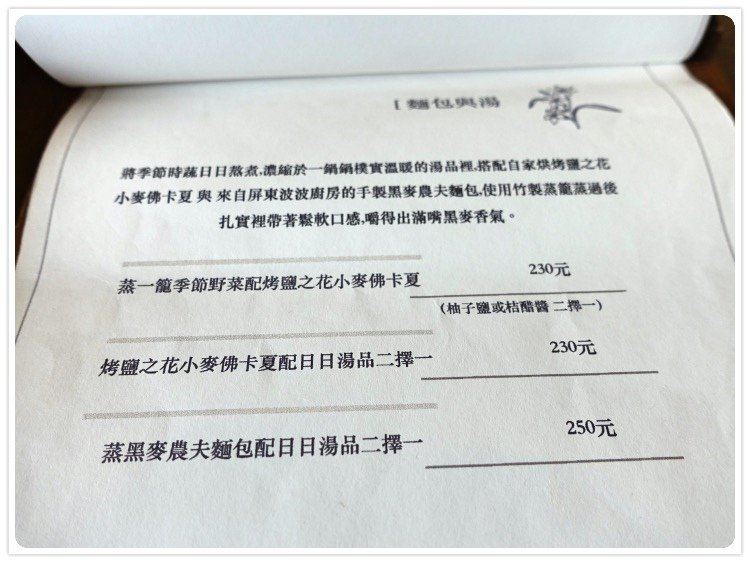 [ 麵包與湯
將季節時蔬日日熬煮,濃縮於一鍋鍋樸實溫暖的湯品裡,搭配自家烘烤鹽之花
小麥佛卡夏 與 來自屏東波波廚房的手製黑麥農夫麵包,使用竹製蒸籠蒸過後
扎實裡帶著鬆軟口感,嚼得出滿嘴黑麥香氣。
蒸一籠季節野菜配烤鹽之花小麥佛卡夏 230元
(柚子鹽或桔醋醬 二擇一)
烤鹽之花小麥佛卡夏配日日湯品二擇一 230元
蒸黑麥農夫麵包配日日湯品二擇一 250元